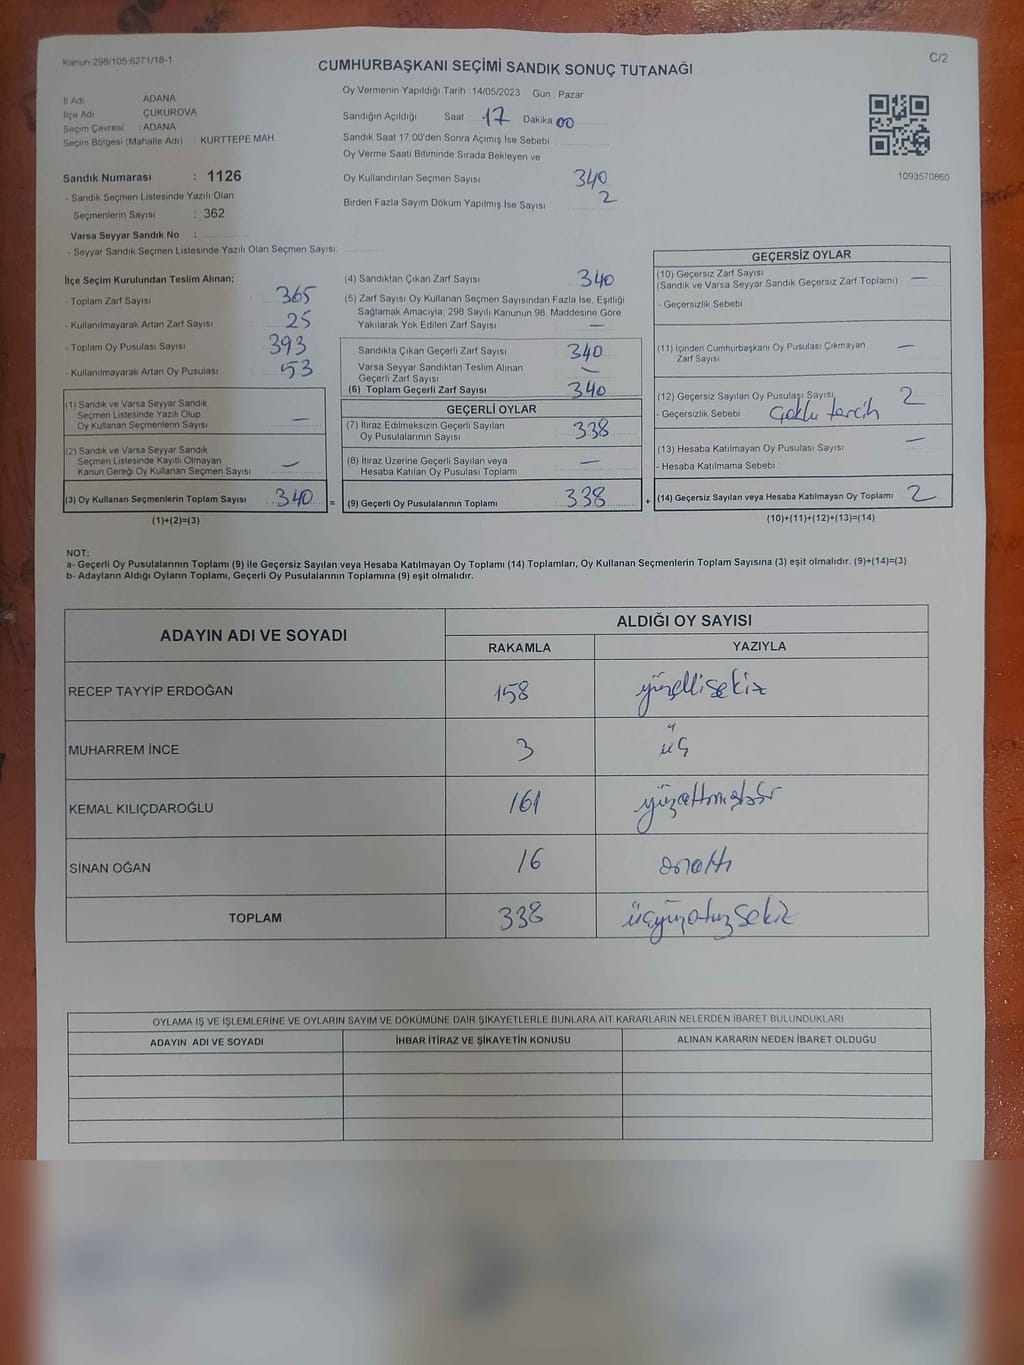 Kanun:298/105,6271/18-1
C/2
CUMHURBAŞKANI SEÇİMİ SANDIK SONUÇ TUTANAĞI
İl Adı : ADANA
İlçe Adı : ÇUKUROVA
Seçim Çevresi : ADANA
Seçim Bölgesi (Mahalle Adı) : KURTTEPE MAH.
Oy Vermenin Yapıldığı Tarih : 14/05/2023 Gün : Pazar
Sandığın Açıldığı Saat 17 Dakika 00
Sandık Saat 17:00'den Sonra Açımış İse Sebebi
Oy Verme Saati Bitiminde Sırada Bekleyen ve
Oy Kullandırılan Seçmen Sayısı 340
Birden Fazla Sayım Döküm Yapılmış İse Sayısı 2
1093570860
Sandık Numarası : 1126
- Sandık Seçmen Listesinde Yazılı Olan
Seçmenlerin Sayısı : 362
Varsa Seyyar Sandık No :
- Seyyar Sandık Seçmen Listesinde Yazılı Olan Seçmen Sayısı:
İlçe Seçim Kurulundan Teslim Alınan;
- Toplam Zarf Sayısı : 365
- Kullanılmayarak Artan Zarf Sayısı : 25
- Toplam Oy Pusulası Sayısı : 393
- Kullanılmayarak Artan Oy Pusulası : 53
(1) Sandık ve Varsa Seyyar Sandık
Seçmen Listesinde Yazılı Olup
Oy Kullanan Seçmenlerin Sayısı : —
(2) Sandık ve Varsa Seyyar Sandık
Seçmen Listesinde Kayıtlı Olmayan
Kanun Gereği Oy Kullanan Seçmen Sayısı : —
(3) Oy Kullanan Seçmenlerin Toplam Sayısı : 340
(1)+(2)=(3)
=
(4) Sandıktan Çıkan Zarf Sayısı 340
(5) Zarf Sayısı Oy Kullanan Seçmen Sayısından Fazla İse, Eşitliği
Sağlamak Amacıyla; 298 Sayılı Kanunun 98. Maddesine Göre
Yakılarak Yok Edilen Zarf Sayısı —
Sandıkta Çıkan Geçerli Zarf Sayısı 340
Varsa Seyyar Sandıktan Teslim Alınan
Geçerli Zarf Sayısı —
(6) Toplam Geçerli Zarf Sayısı 340
GEÇERLİ OYLAR
(7) İtiraz Edilmeksizin Geçerli Sayılan
Oy Pusulalarının Sayısı 338
(8) İtiraz Üzerine Geçerli Sayılan veya
Hesaba Katılan Oy Pusulası Toplamı —
(9) Geçerli Oy Pusulalarının Toplamı 338
+
GEÇERSİZ OYLAR
(10) Geçersiz Zarf Sayısı
(Sandık ve Varsa Seyyar Sandık Geçersiz Zarf Toplamı) : —
- Geçersizlik Sebebi :
(11) İçinden Cumhurbaşkanı Oy Pusulası Çıkmayan
Zarf Sayısı —
(12) Geçersiz Sayılan Oy Pusulası Sayısı 2
- Geçersizlik Sebebi : Çoklu tercih
(13) Hesaba Katılmayan Oy Pusulası Sayısı —
- Hesaba Katılmama Sebebi :
(14) Geçersiz Sayılan veya Hesaba Katılmayan Oy Toplamı 2
(10)+(11)+(12)+(13)=(14)
NOT:
a- Geçerli Oy Pusulalarının Toplamı (9) ile Geçersiz Sayılan veya Hesaba Katılmayan Oy Toplamı (14) Toplamları, Oy Kullanan Seçmenlerin Toplam Sayısına (3) eşit olmalıdır. (9)+(14)=(3)
b- Adayların Aldığı Oyların Toplamı, Geçerli Oy Pusulalarının Toplamına (9) eşit olmalıdır.
ADAYIN ADI VE SOYADI
ALDIĞI OY SAYISI
RAKAMLA YAZIYLA
RECEP TAYYİP ERDOĞAN 158 yüzellisekiz
MUHARREM İNCE 3 üç
KEMAL KILIÇDAROĞLU 161 yüzaltmışbir
SİNAN OĞAN 16 onaltı
TOPLAM 338 üçyüzotuzsekiz
OYLAMA İŞ VE İŞLEMLERİNE VE OYLARIN SAYIM VE DÖKÜMÜNE DAİR ŞİKAYETLERLE BUNLARA AİT KARARLARIN NELERDEN İBARET BULUNDUKLARI
ADAYIN ADI VE SOYADI İHBAR İTİRAZ VE ŞİKAYETİN KONUSU ALINAN KARARIN NEDEN İBARET OLDUĞU